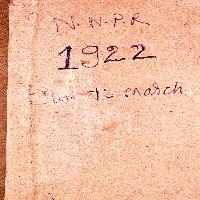 N. N. P. R
1922
to march